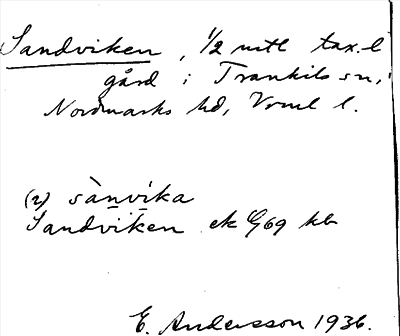 Sandviken, 1/2 mtl tax.l
gård i Trankils sn,
Nordmarks hd, Vrml l.
(2) sànvíka
Sandviken ek 69 kb
E. Andersson 1936.